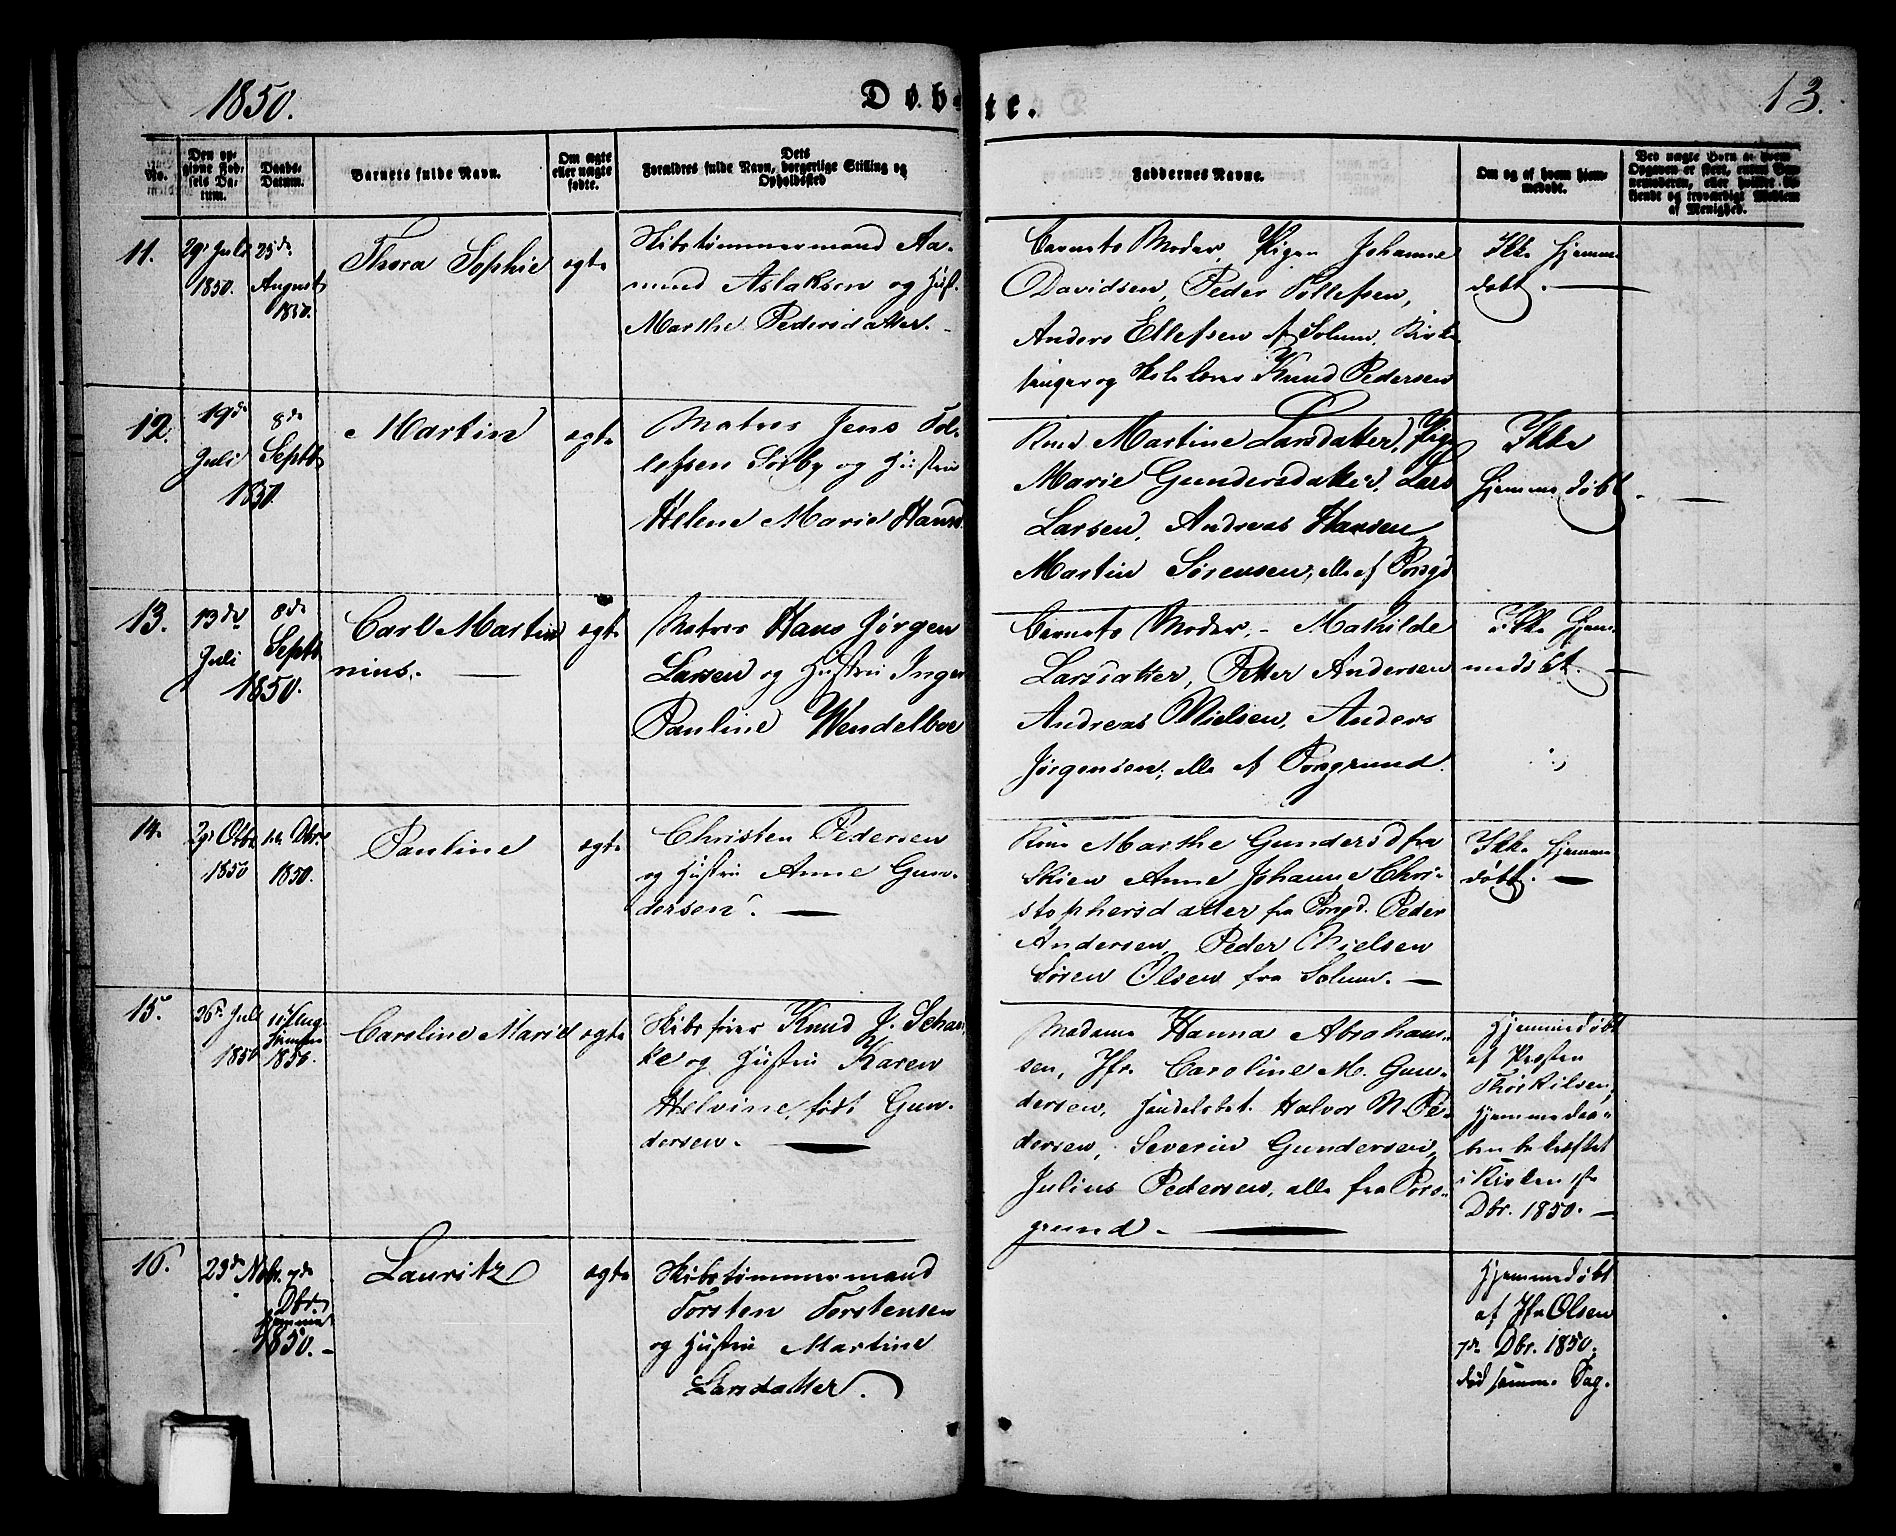 1850.
Døbte.
13.
No.
Den opgivne Fødsels Datum.
Daabs-Datum.
Barnets fulde Navn.
Om ægte eller uægte fødte.
Forældres fulde Navn, Dets borgerlige Stilling og Opholdssted
Faddernes Navne.
Om og af hvem hjemmedøbt.
11.
29de Juli 1850.
25de August 1850.
Thora Sophie
ægte
Skibstømmermand Aa-
mund Aslaksen og Hust.
Marthe Pedersdatter. -
Barnets Moder, Pigen Johanne
Davidsen, Peder Tollefsen,
Anders Ellefsen af Solum, Kirke-
sanger og Skolelærer Knud Pedersen
Ikke hjemme-
døbt. —
12.
19de Juli
8de Septb
1850.
Martin
ægte
Matros Jens Tol-
lefsen Sørby og Hustru
Helene Marie Hans
Kone Martine Larsdatter, Pige
Marie Gundersdatter, Lars
Larsen, Andreas Hansen,
Martin Sørensen, alle af Porsgd
Ikke
hjemmedøbt. —
13.
13de Juli
8de Septb
1850.
Carl Martin
nius. —
ægte
Matros Hans Jørgen
Larsen og Hustru Inger
Pauline Wendelboe
Barnets Moder, - Mathilde
Larsdatter, Petter Andersen
Andreas Nielsen, Anders
Jørgensen, alle af Porsgrund.
Ikke hjem-
medøbt. —
14.
29de Otbr 1850
1ste Dbr. 1850.
Pauline
ægte
Christen Pedersen
og Hustru Anne Gun-
dersen. —
Kone Marthe Gundersd fra
Skien Anne Johanne Chri-
stophersdatter fra Porsgd. Peder
Andersen, Peder Nielsen
Søren Olsen fra Solum. —
Ikke hjemme
døbt. —
15.
26de Juli 1850
Aug
hjemme
1850.
Caroline Marie
ægte
Skibsfører Knud J. Schan-
ke og Hustru Karen
Helvine, født Gun-
dersen. —
Madame Hanna Abraham-
sen, Jfr. Caroline M. Gun-
dersen, Halvor N. Pe-
dersen, Severin Gundersen,
Julius Pedersen, alle fra Pors-
grund. —
Hjemmedøbt
af Præsten
Thorkilsen,
hjemmedaa-
ben bekræftet
i Kirken 1ste
Dbr. 1850. —
16.
23de Nobr.
7de Dbr.
hjemme
1850. -
Lauritz
ægte
Skibstømmermand
Torsten Torstensen
og Hustru Martine
Larsdatter.
Hjemmedøbt
af Jfr Olsen
7de Dbr. 1850.
død samme Dag.